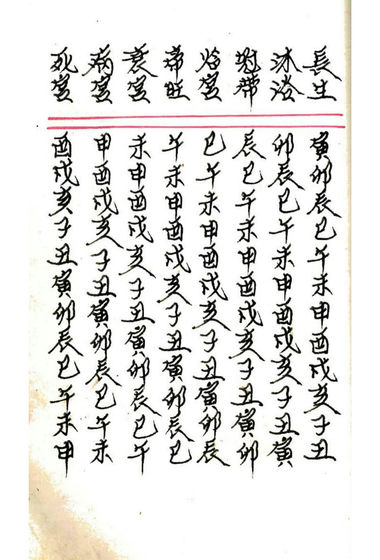 長生 寅卯辰巳午未申酉戌亥子丑
沐浴 卯辰巳午未申酉戌亥子丑寅
冠帶 辰巳午未申酉戌亥子丑寅卯
临宫 巳午未申酉戌亥子丑寅卯辰
帝旺 午未申酉戌亥子丑寅卯辰巳
衰宫 未申酉戌亥子丑寅卯辰巳午
病宫 申酉戌亥子丑寅卯辰巳午未
死宫 酉戌亥子丑寅卯辰巳午未申